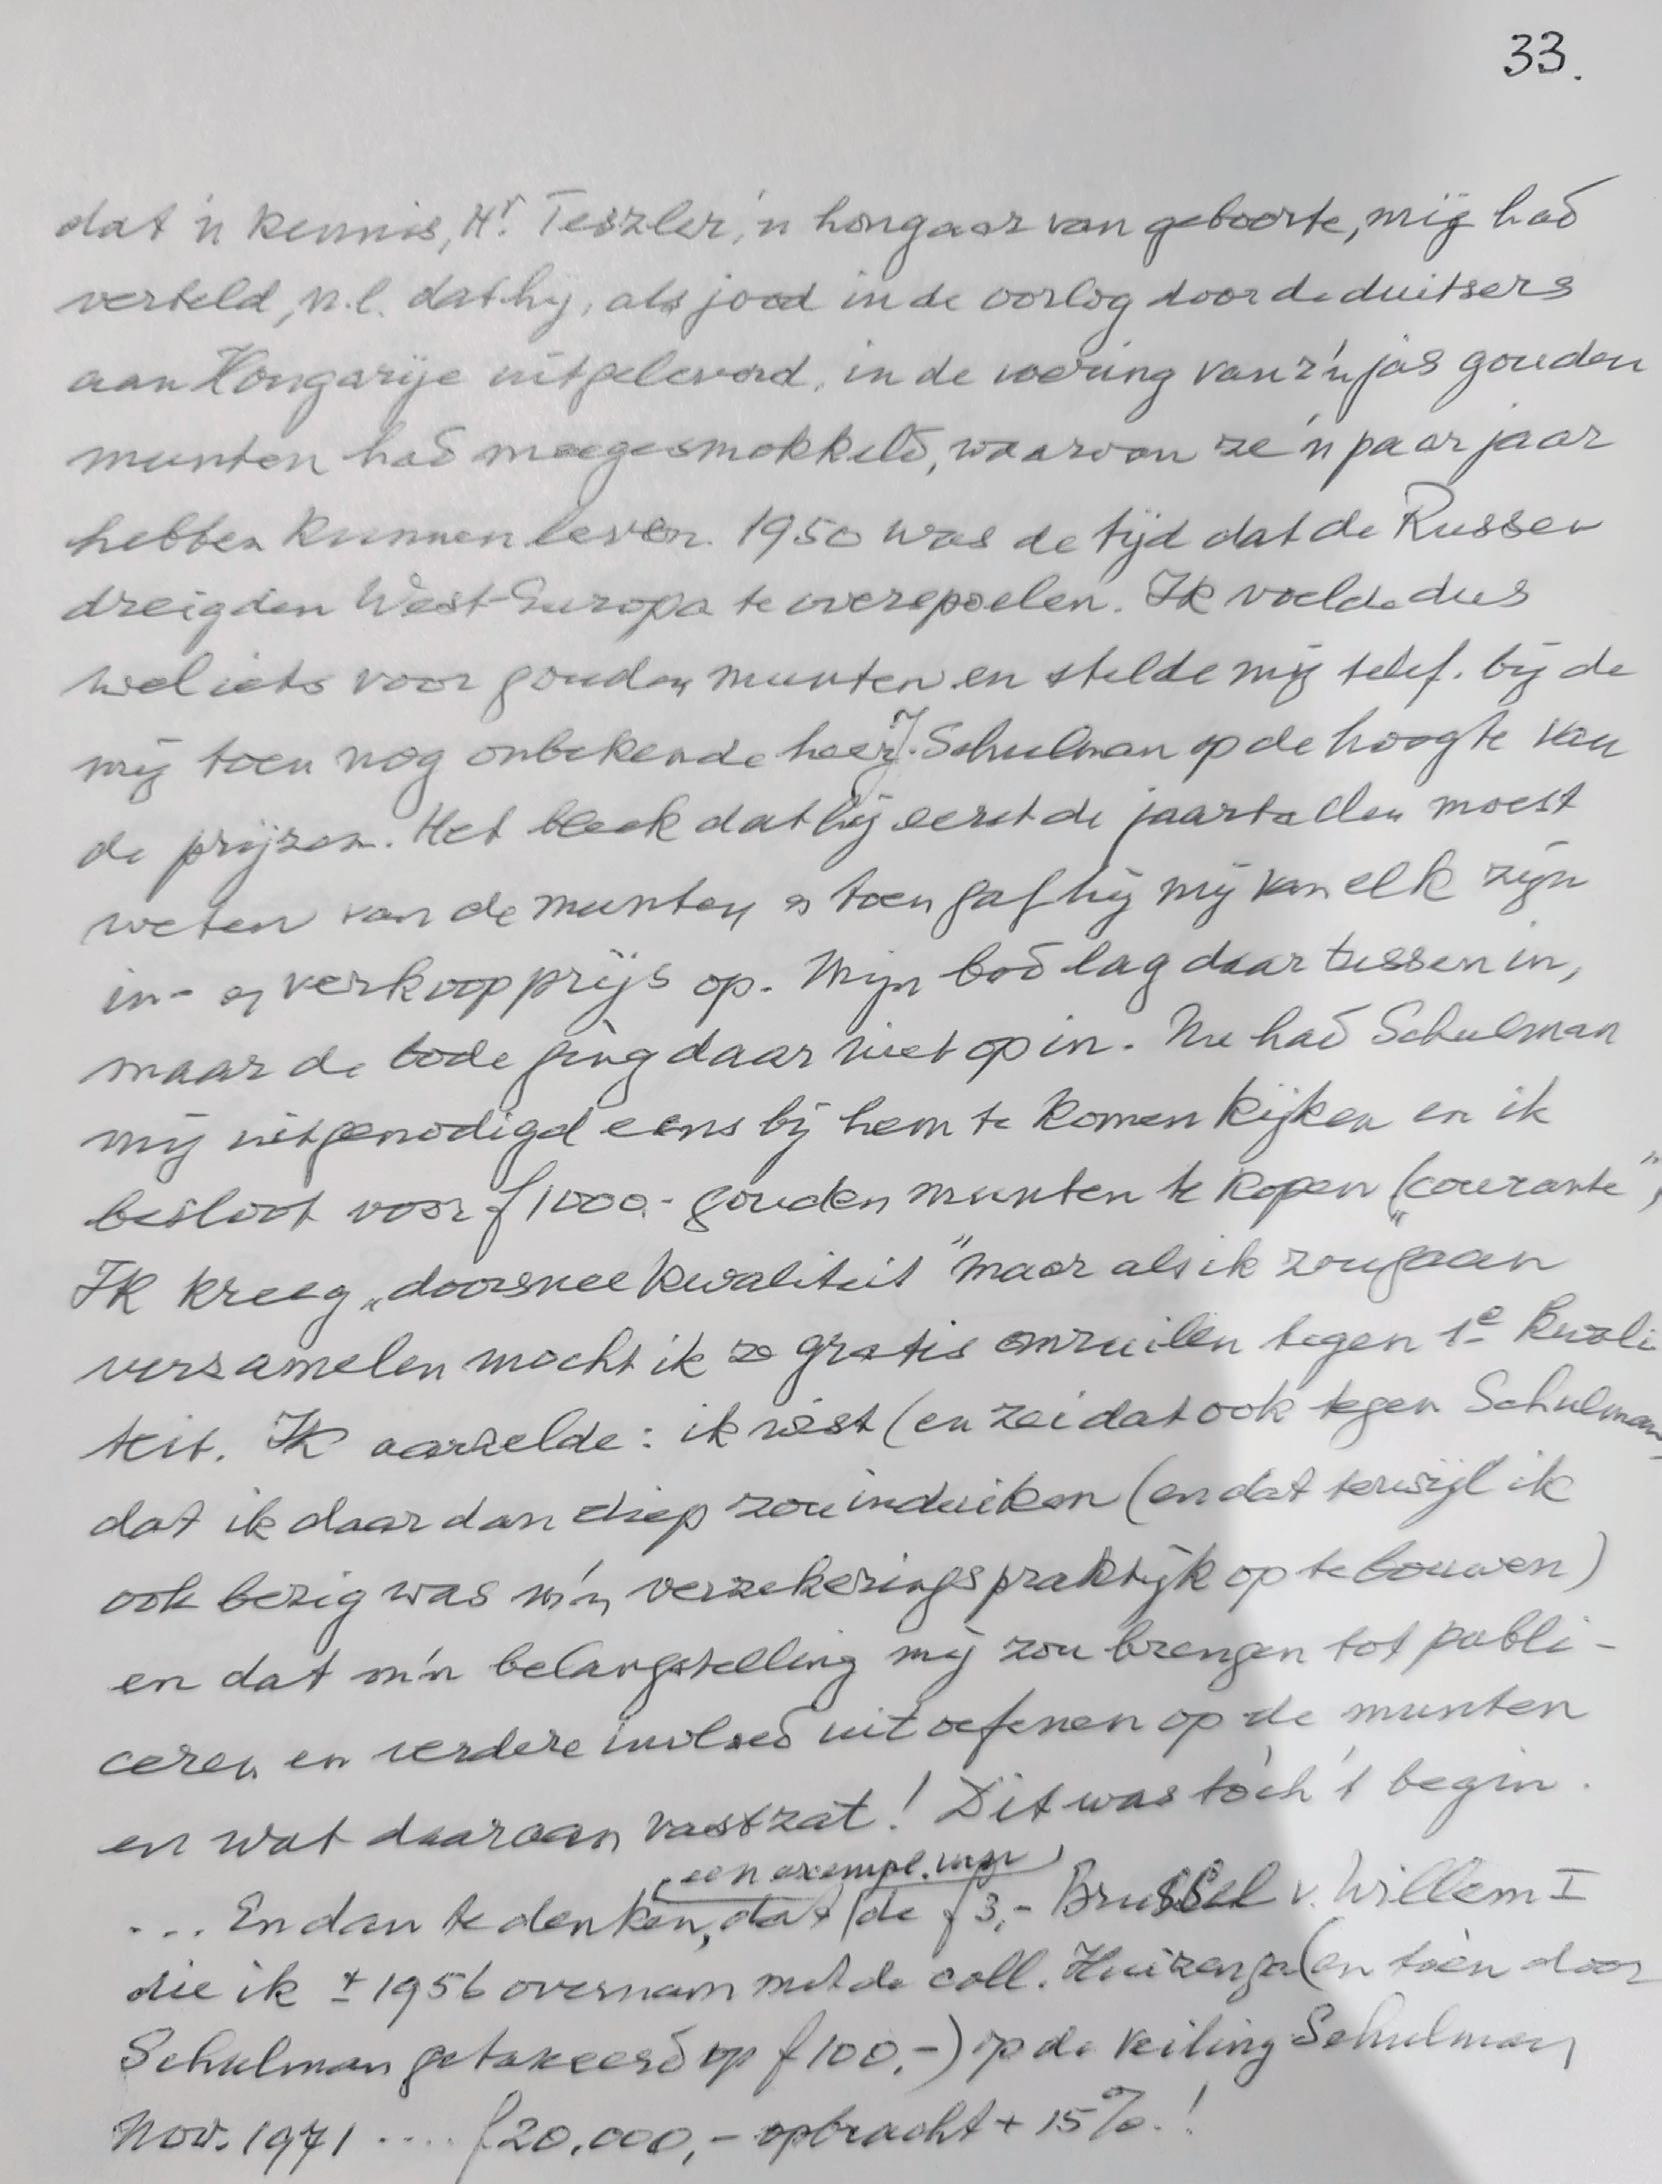 33.
dat 'n kennis, Hr. Teszler, 'n hongaar van geboorte, mij had
verteld, n.l. dat hij, als jood in de oorlog door de duitsers
aan Hongarije uitgeleverd, in de voering van z'n jas gouden
munten had meegesmokkeld, waarvan ze 'n paar jaar
hebben kunnen leven. 1950 was de tijd dat de Russen
dreigden West-Europa te overspoelen. Ik voelde dus
wel iets voor gouden munten en stelde mij telef. bij de
mij toen nog onbekende heer J. Schulman op de hoogte van
de prijzen. Het bleek dat hij eerst de jaartallen moest
weten van de munten en toen gaf hij mij van elk zijn
in- en verkoopprijs op. Mijn bod lag daar tussen in,
maar de bode ging daar niet op in. Nu had Schulman
mij uitgenodigd eens bij hem te komen kijken en ik
besloot voor f 1000,- gouden munten te kopen („courante”,
Ik kreeg „doorsnee kwaliteit” maar als ik zou gaan
verzamelen mocht ik ze gratis omruilen tegen 1e kwali
teit. Ik aarzelde: ik wist (en zei dat ook tegen Schulman
dat ik daar dan diep zou induiken (en dat terwijl ik
ook bezig was m'n verzekeringspraktijk op te bouwen)
en dat m'n belangstelling mij zou brengen tot publi-
ceren en verdere invloed uitoefenen op de munten
en wat daaraan vastzat! Dit was tòch 't begin.
een exempl. van
... En dan te denken, dat de f 3,- Brussel v. Willem I
die ik ± 1956 overnam met de coll. Huizenga (en toèn door
Schulman getaxeerd op f 100,-) op de veiling Schulman
Nov. 1971 .... f 20.000,- opbracht + 15%.!